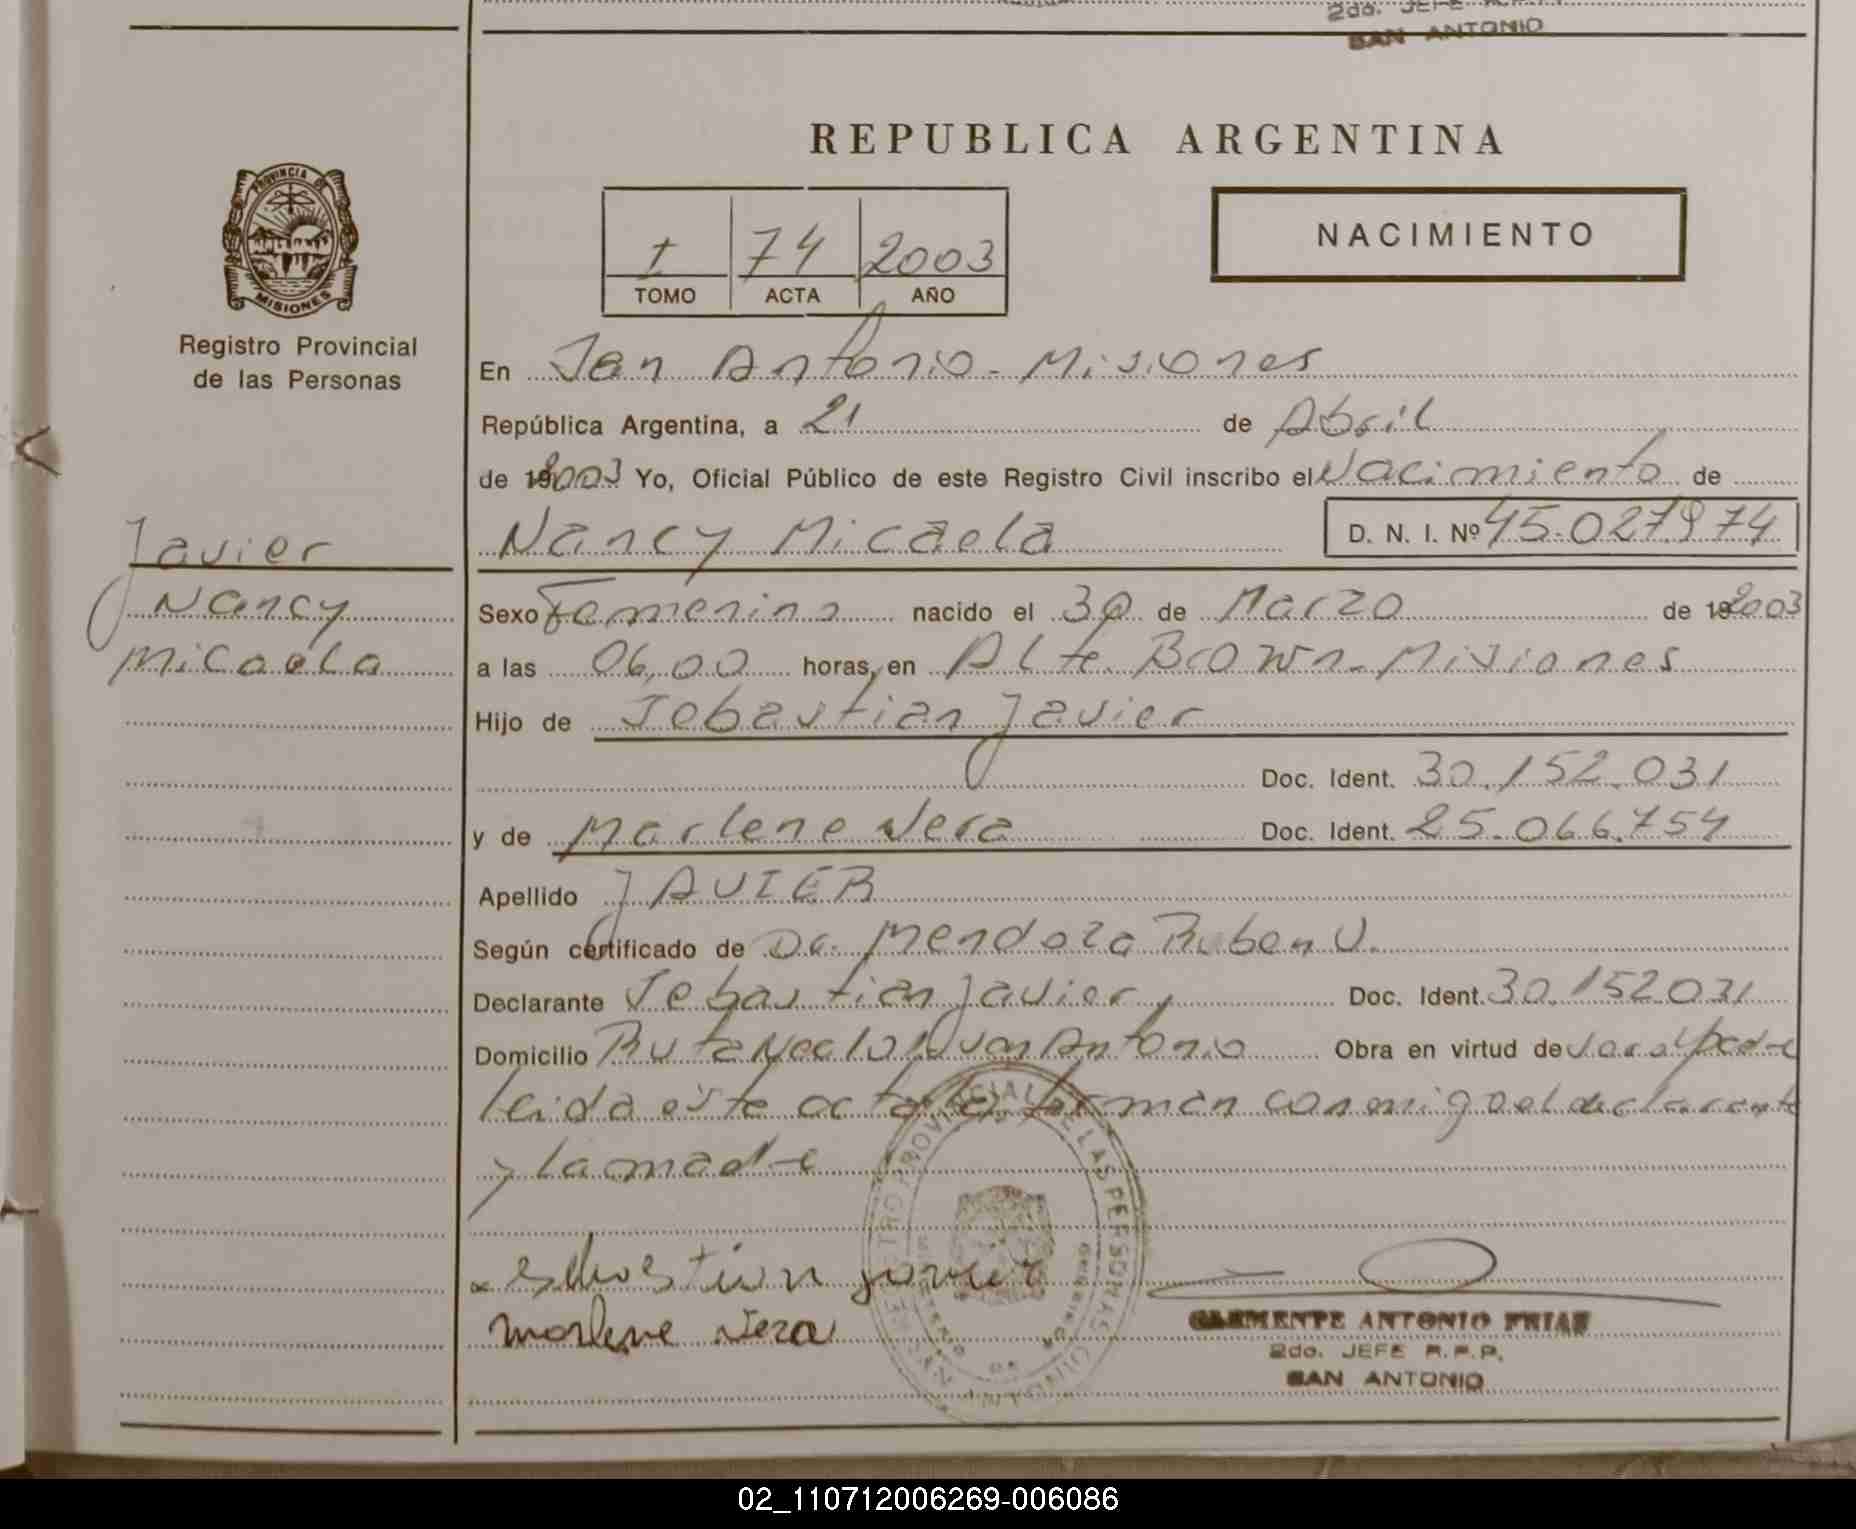 2do. JEFE R.P.P.
SAN ANTONIO
REPUBLICA ARGENTINA
PROVINCIA DE
MISIONES
Registro Provincial
de las Personas
I 74 2003
TOMO ACTA AÑO
NACIMIENTO
En San Antonio - Misiones
República Argentina, a 21 de Abril
de 192003 Yo, Oficial Público de este Registro Civil inscribo el Nacimiento de
Nancy Micaela D. N. I. Nº 45.027974
Javier
Nancy
Micaela
Sexo Femenino nacido el 30 de Marzo de 192003
a las 06,00 horas, en Alte. Brown - Misiones
Hijo de Sebastian Javier
Doc. Ident. 30.152.031
y de Marlene Vera Doc. Ident. 25.066.754
Apellido JAVIER
Según certificado de Dr. Mendoza Ruben V.
Declarante Sebastian Javier Doc. Ident. 30.152.031
Domicilio Ruta Antonio Obra en virtud de
leida este acta la firman conmigo el declarante
y la madre
Javier
Marlene Vera
CLEMENTE ANTONIO FRIAS
2do. JEFE R.P.P.
SAN ANTONIO
02_110712006269-006086